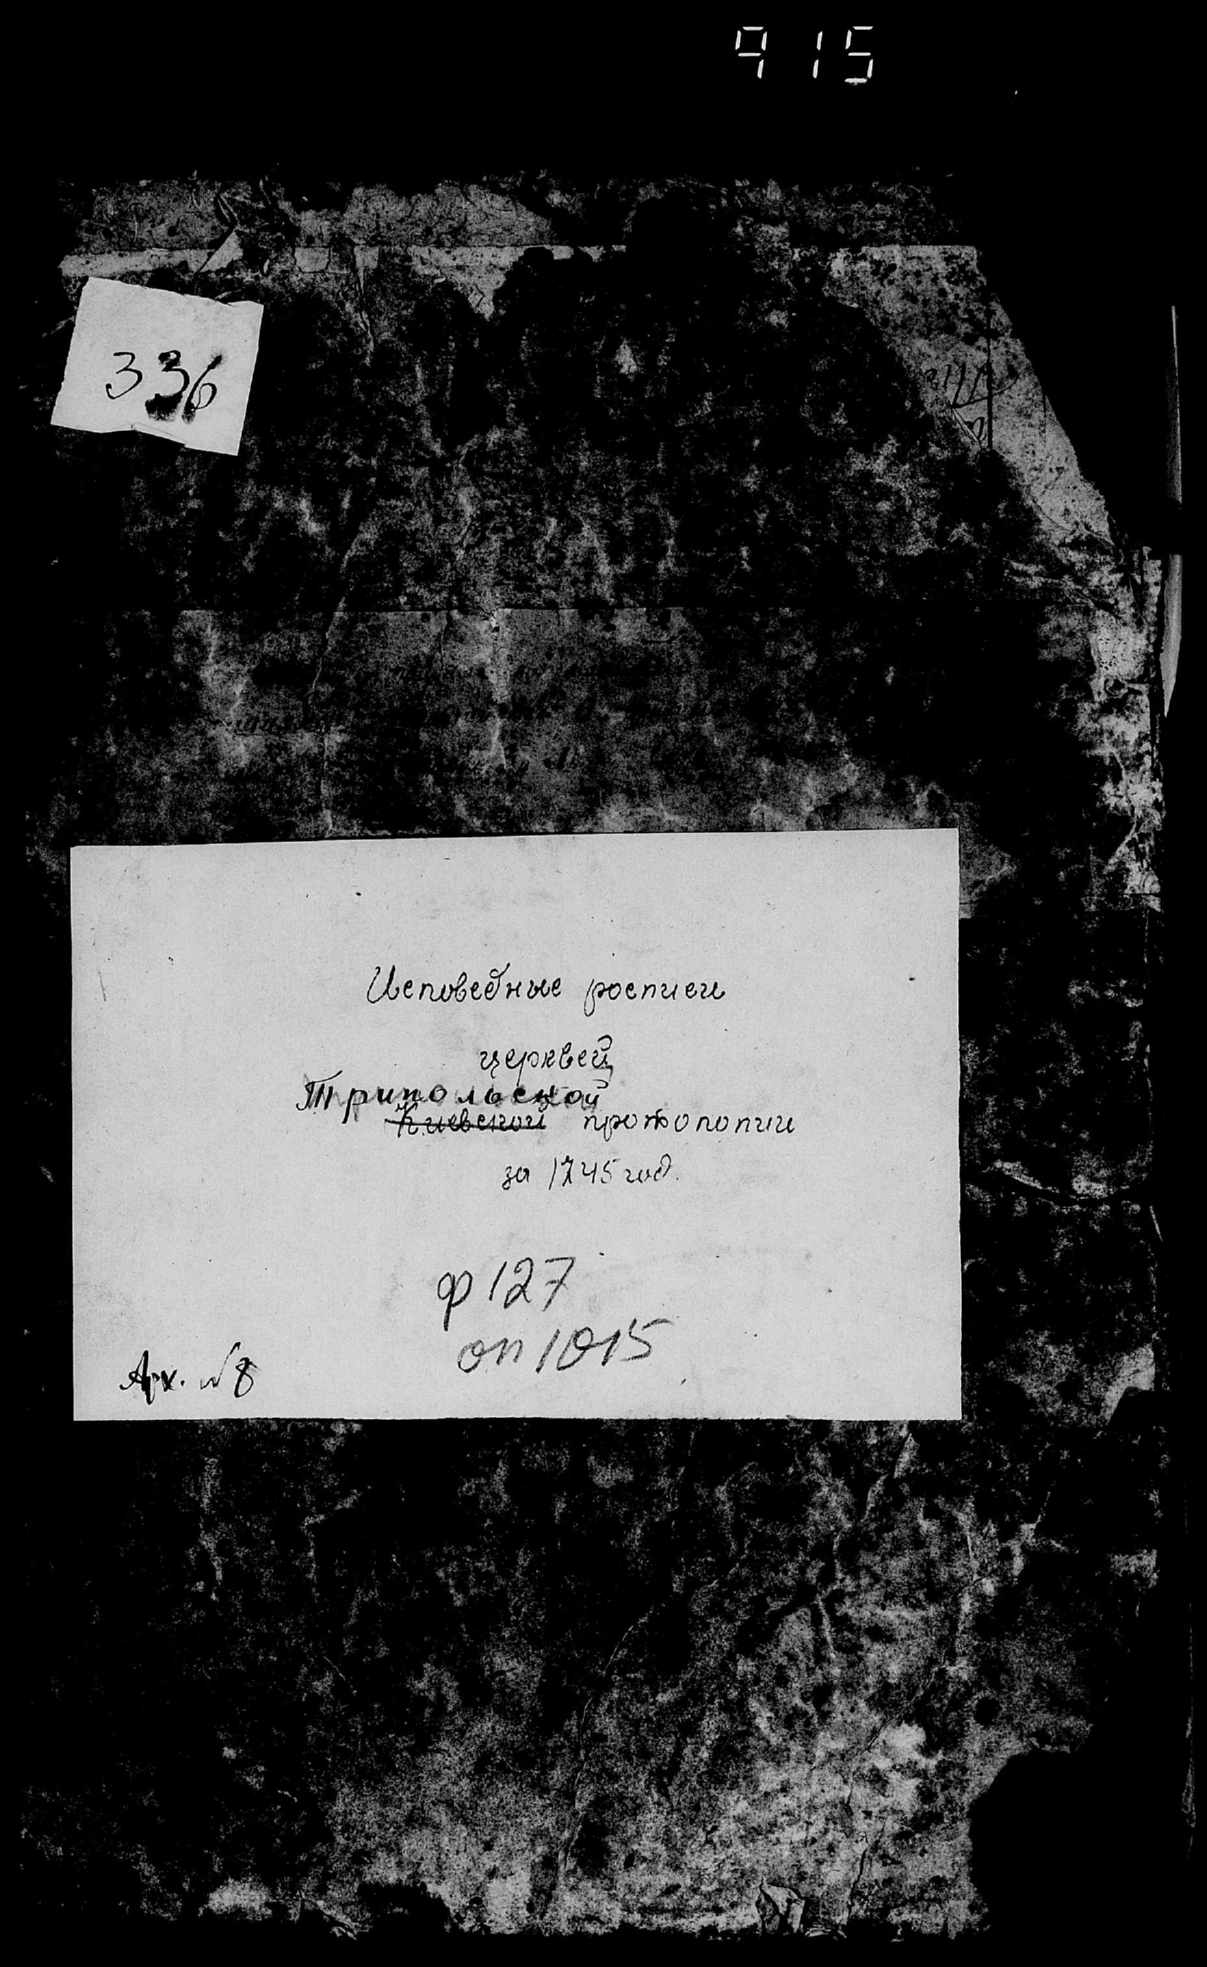 915
336
Исповедные росписи
церквей
Трипольской
Киевской протопопии
за 1745 год.
ф 127
оп 1015
Арх. №8